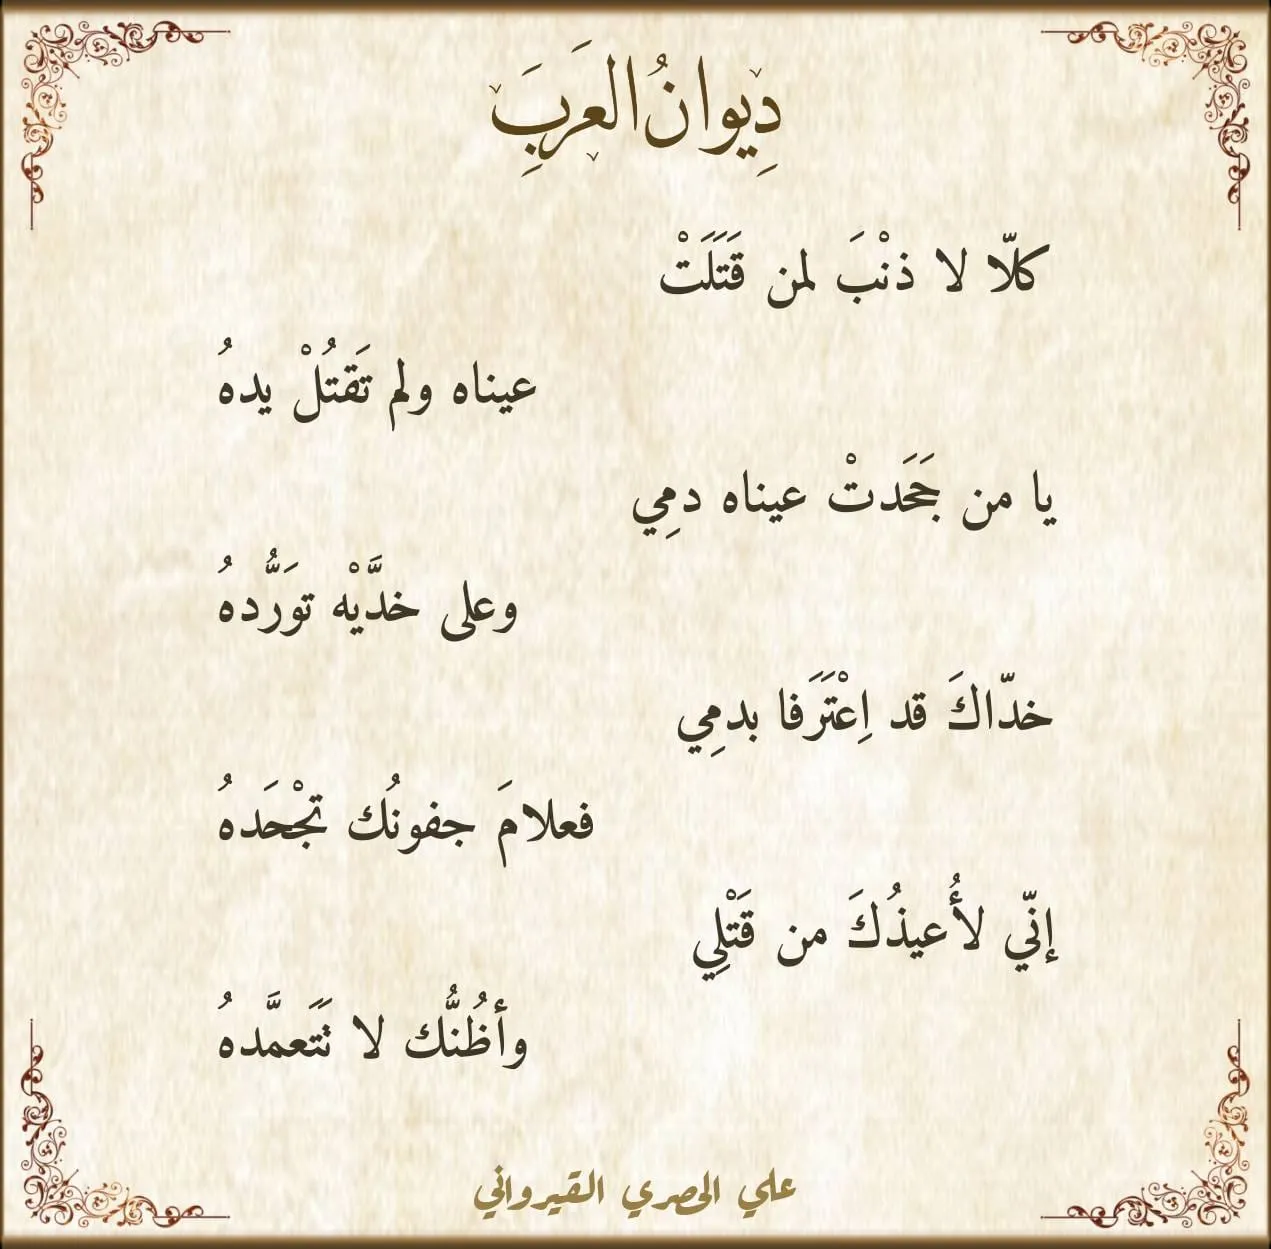 دِيوانُ العَربَِ
كلّا لا ذنْبَ لمن قَتَلَتْ
عيناه ولم تَقتُلْ يدهُ
يا من جَحَدتْ عيناه دمِي
وعلى خدَّيْه تورَُّدهُ
خدّاكَ قد اِعْتَرَفا بدمِي
فعلامَ جفونُك تجْحَدهُ
إنّي لأُعيذُكَ من قَتْلِي
وأظُنُّك لا تَتَعمَّدهُ
علي الحصري القيرواني